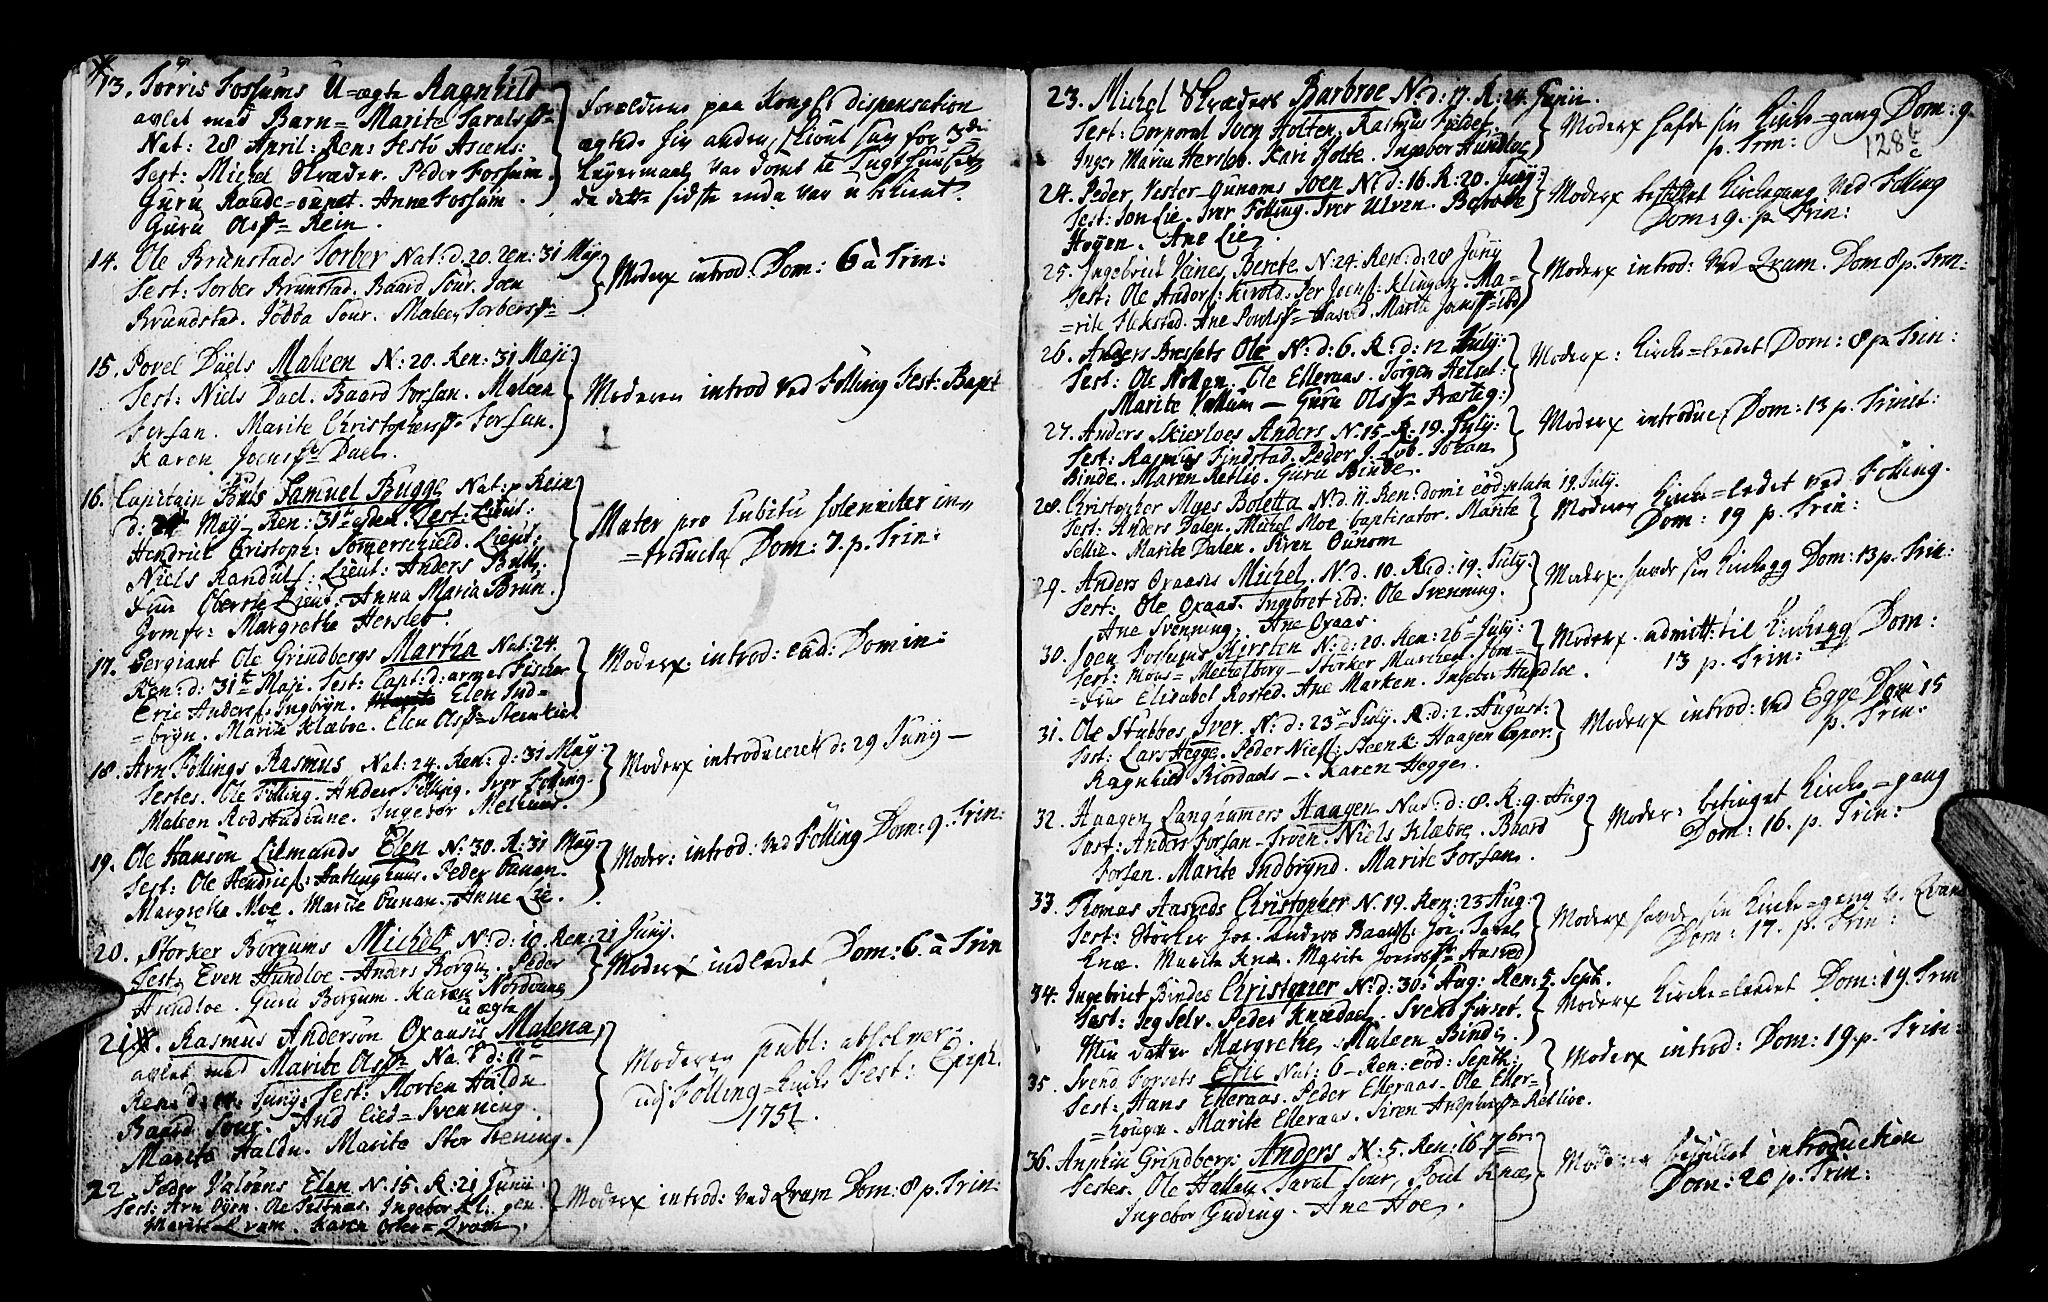 13. Torris Fossums U=ægte Ragnhild
avlet med Barn= Marite Taralsd=
Nat: 28 April: Ren: Festo Ascens:
Test: Michel Skræder. Peder Fossum.
Guru Raade=ounet. Anne Fossum.
Guru Olsd= Rein.
forældrene paa Kongl: dispensation
ægtede hin anden,
Leyermaal var dømt te Tugthuuset
da dette sidste endnu var
14. Ole Brunstads Torber Nat: d. 20. Ren: 31 May.
Test: Torber Brunstad. Baard Sour. Joen
Brunstad. Jödba Sour. Maleen Torbersd=
Moderx introd. Dom: 6 à Trin:
15. Povel Duels Maleen N: 20. Ren: 31 Maji
Test: Niels Duel. Baard Forsan. Maleen
Forsan. Marite Christophersd= Forsan.
Karen Joensd= Duel.
Moderen introd ved Følling Fest: Bapt
16. Capitain Buls Samuel Bugge Nat: p Rein
d: 24 May. Ren: 31te ejusd. Test: Lieut:
Hendrich Christoph: Sommerschield. Lieut:
Niels Randulf: Lieut: Anders Bull.
Frue Oberste Lieut: Anna Maria Brun.
Jomfr: Margrethe Hersleb.
Mater pro cubitu solenniter in=
=troducta Dom: 7. p. Trin:
17. Sergiant Ole Grindbergs Martha Nat: 24.
Ren: d: 31te Maji. Test: Capt: d: armes Fischer
Eric Anders: Ingbryn. Elen Ind=
=bryn. Marite Klæboe. Elen Olsd= Steenkier
Moderx: introd: ead: Domin:
18. Arn Föllings Rasmus Nat: 24. Ren: d: 31 May:
Testes. Ole Fölling. Anders Fölling. Iver Fölling.
Maleen Rodstadoune. Ingebor Melhuus.
Moderx introduceret d: 29 Junj —
19. Ole Hansøn Lilmands Elen N: 30. R: 31 May:
Test: Ole Hendrics: Hatlinghuus. Peder Ounan.
Margretha Moe. Marite Ounan. Anne Lie.
Moder: introd: ved Fölling Dom: 9. Trin:
20. Størker Borgums Michel N: d: 19. Ren: 21 Junj.
Test. Even Hundloe. Anders Borgum. Peder
Hundloe. Guru Borgum. Karen Nordvang
Moderx indledet Dom: 6. à Trin
21. Rasmus Andersøn Oxaasis u ægte Malena,
avlet med Marite Olsd= Na: d: 11te
Ren: d: 14. Junj: Test: Morten Haldu
Baard Sour. And Eied= Svenning.
Marite Haldu. Marite Stor Svening.
Moderen publ: absolver:
udj Fölling=Kirke Fest: Epiph.
1751.
22. Peder Valöens Elen N: 15. R: 21 Junii
Test: Arn Öyen. Ole Tiltnæs. Ingebor Kl: gen:
Marite Qvam. Karen Olsd= Qvam.
Moderx introd: ved Qvam Dom: 8 p. Trin:
23. Michel Skræders Barbroe N: d: 17. R: 24 Junii.
Test: Corporal Joen Holten. Rasmus Fieldet.
Inger Maria Hersleb. Kari Holte. Ingebor Hundloe
Moderx hafde sin Kirke=gang Dom: 9.
p. Trin:
128 b
c
24. Peder Vester=Ounoms Joen N: d: 16. R: 20. Junj:
Test: Jon Lie. Iver Fölling. Iver Ulven. Berethe
Høyen. Ane Lie.
Moderx bestilt Kirkegang ved Fölling
Dom: 9. p. Trin:
25. Ingebrict Vines Berete N: 24. Ren: d: 28 Junj
Test: Ole Anders: Kirold. Per Joens: Klingen. Ma=
=rite Flekstad. Ane Povelsd= Aasved. Marite Joensd= ibd
Moderx introd: ved Qvam. Dom 8 p. Trin:
26. Anders Bressets Ole N: d: 6. R. d: 12 July:
Test: Ole Nollan. Ole Elleraas. Jörgen Helset:
Marite Vollum — Guru Olsd= Præsteg:
Moderx: Kirke=ledet Dom: 8 p. Trin:
27. Anders Skierloes Anders N: 15. R: 19. July:
Test: Rasmus Findstad. Peder J: Lob. Johan
Binde. Maren Ketlie. Guru Binde.
Moderx introduc: Dom: 13 p. Trinit:
28. Christopher Myes Boletta N: d: 11. Ren: domi eod: relata 19. July.
Test: Anders Dalen. Michel Moe baptisator. Marite
Sellie. Marite Dalen. Siren Ounom
Moderen Kirke=ledet ved Fölling.
Dom: 19 p. Trin:
29. Anders Oxaasis Michel. N: d. 10. R: d: 19. July.
Test: Ole Oxaas. Ingebret ibd: Ole Svenning.
Ane Svenning. Ane Oxaas.
Moderx. hafde sin Kirkegg Dom: 13 p. Trin:
30. Joen Fossums Kirsten N: d: 20. Ren: 26. July:
Test: Mons= Mechelborg — Størker Marchen. Jom=
=fru Elisabet Rosted. Ane Marken. Ingebor Hundloe.
Moderx. admitt: til Kirkegg Dom:
13 p. Trin:
31. Ole Stubbes Iver. N: d: 23de July. R: d: 2. August:
Test: Lars Hegge. Peder Niels: Steenk: Haagen Cpor:
Ragnhild Riordals —. Karen Hegge.
Moderx introd: ved Egge Dom 15
p. Trin:
32. Haagen Langhammers Haagen Nat: d: 8. R: 9. Aug
Test: Anders Forsan — Troen. Niels Klæboe. Baard
Forsan. Marite Indbrynd. Marite Forsan.
Moder: betinget Kirke=gang
Dom: 16. p. Trin:
33. Thomas Aasveds Christopher N. 19. Ren: 23 Aug:
Test: Størker Joe. Anders Baards: Joe. Taral
Knæ. Marite Knæ. Marite Joensd= Aasved
Moderx hafde sin Kirke=gang v. Qvam
Dom: 17. p. Trin:
34. Ingebrict Bindes Christopher N: d: 30. Aug: Ren: 5. Sept.
Test: Jeg Selv. Peder Knædal. Svend Forset.
Min datter Margrethe. Maleen Binde.
Moderx Kirke=ledet Dom: 19. Trin
35. Svend Forsets Eric Nat: 6 — Ren: eod: Septb:
Test: Hans Elleraas. Peder Elleraas. Ole Eller=
=hougen. Marite Elleraas. Siren Andersd= Ketlie.
Moderx introd: Dom: 19. p. Trin:
36. Anphin Grindberg: Anders N: 5. Ren: 16 7br:
Testes. Ole Hallem. Taral Sour, Poul Knæ,
Ingebor Guding. Ane Hoe.
Moderen bestillet introduction
Dom: 20 p. Trin: